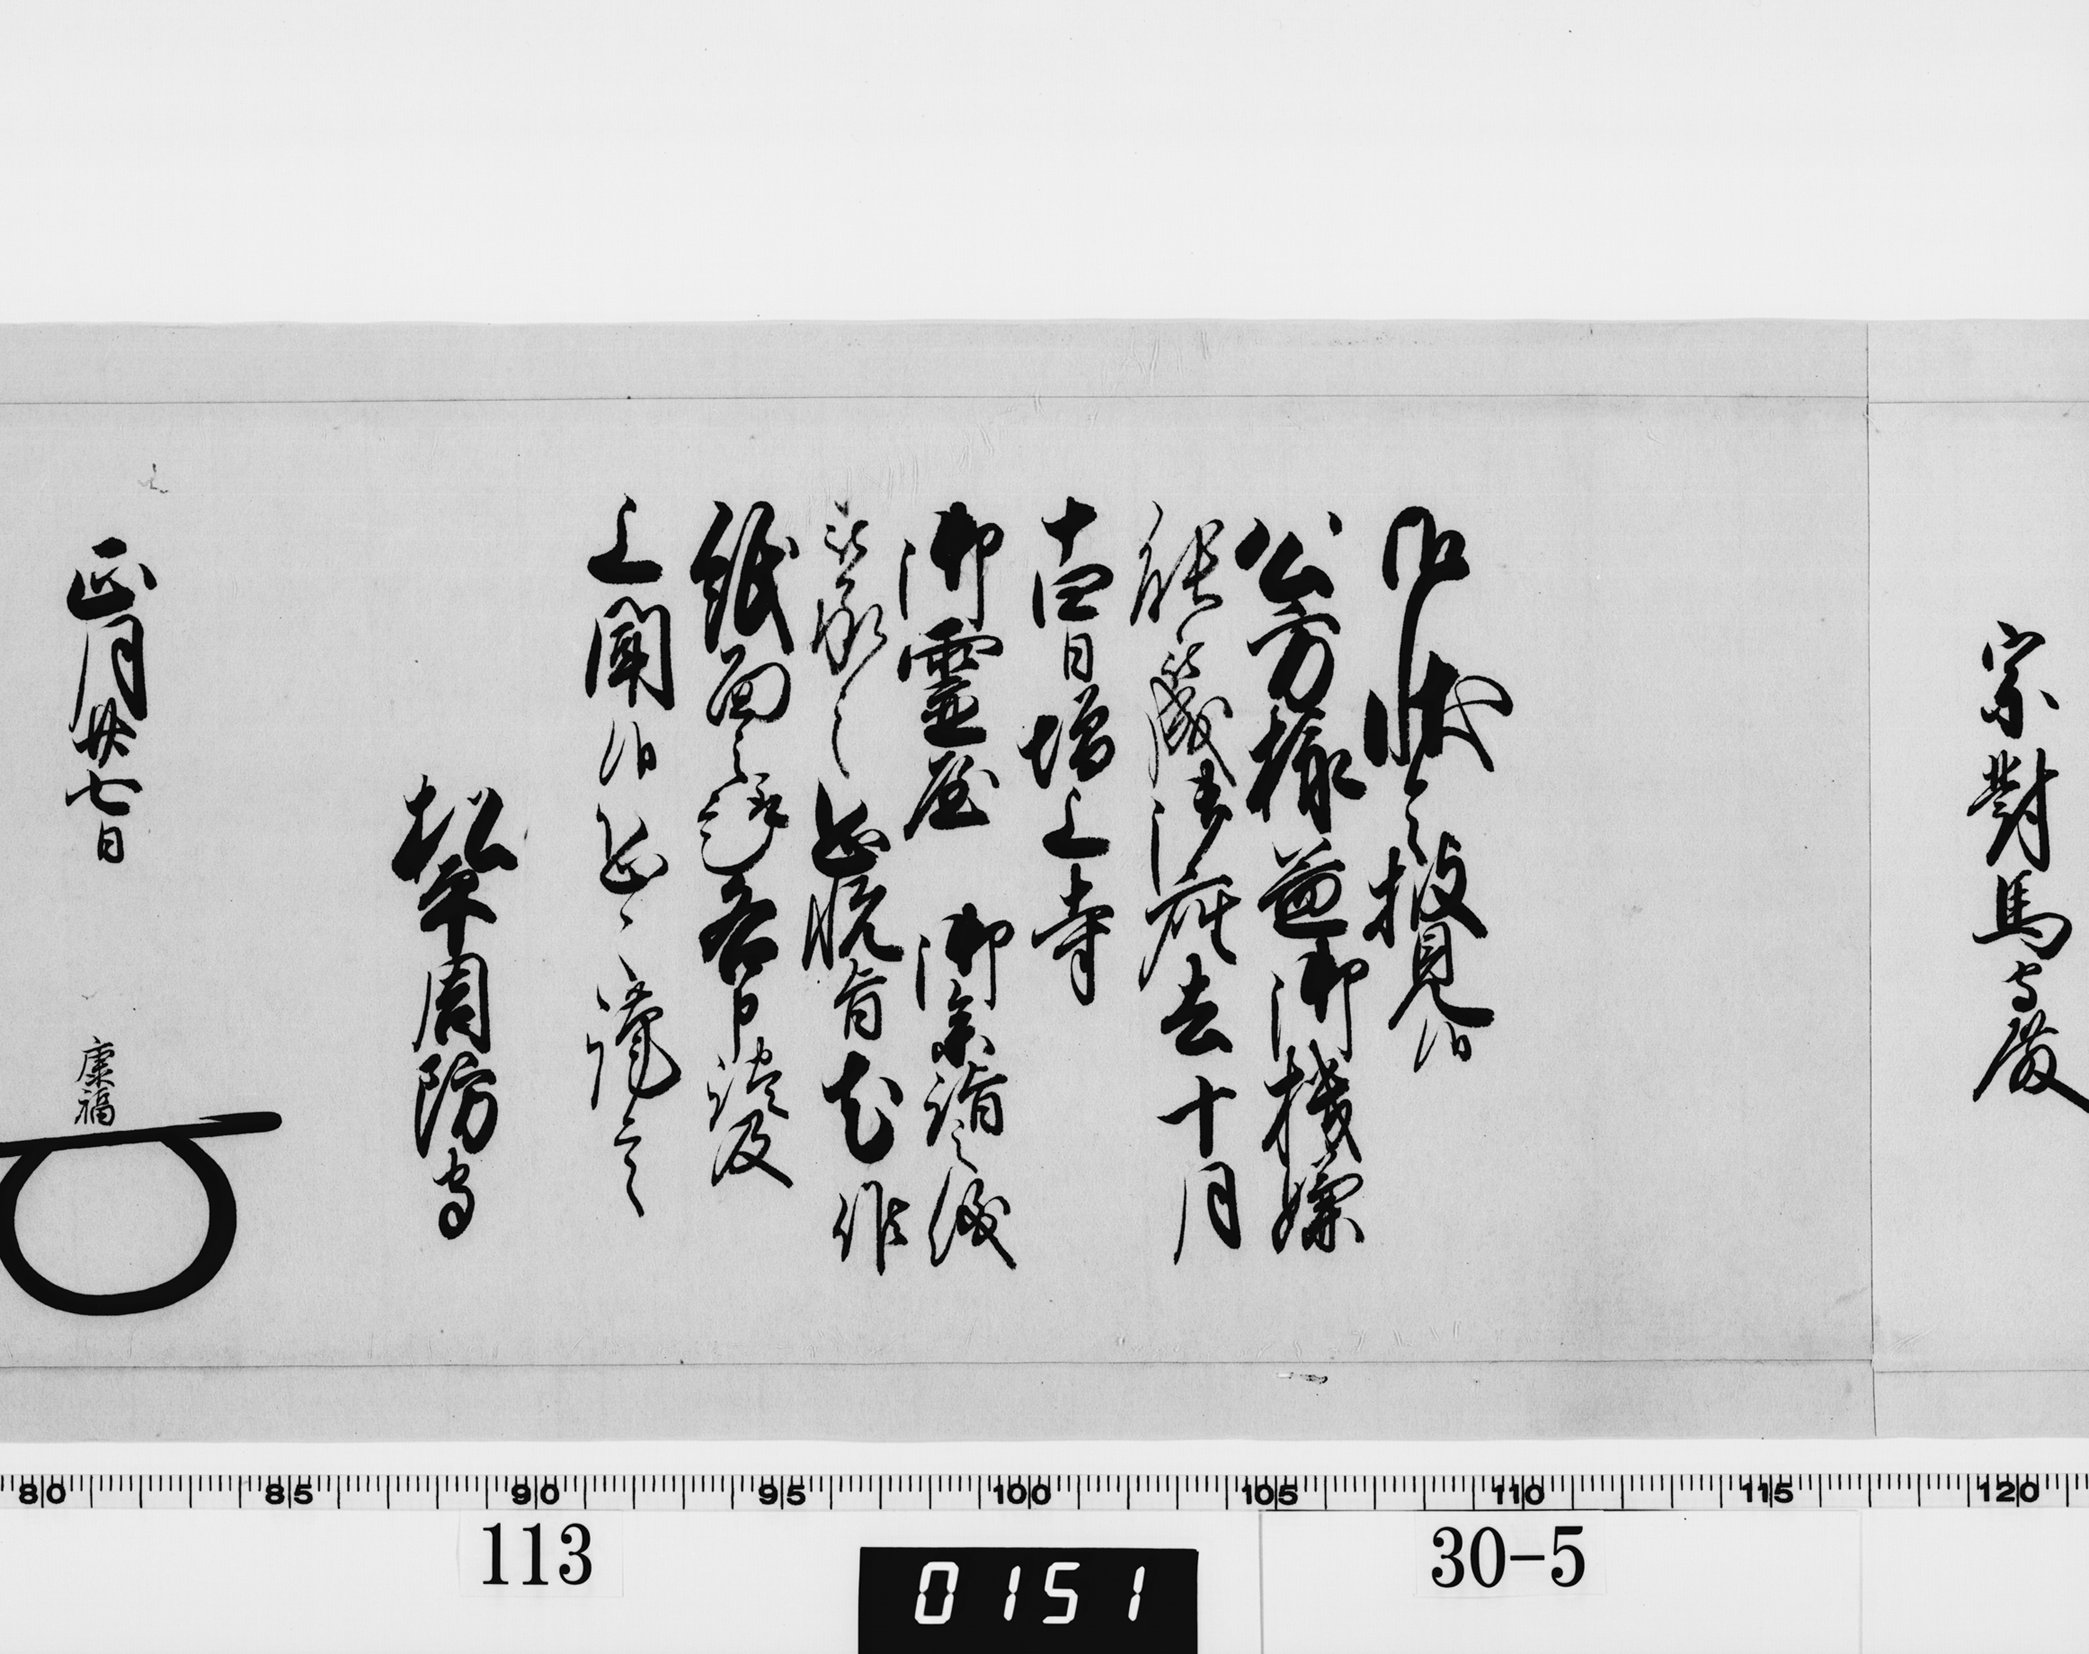 宗對馬守殿
御状令披見候
公方様益御機嫌
能被成御座去十月
十四日増上寺
御霊屋 御参詣之儀
被承之恐悦旨尤候
紙面之趣各申談及
上聞候恐々謹言
松平周防守
正月廿七日
康福
80 85 90 95 100 105 110 115 120
113
30-5
0151